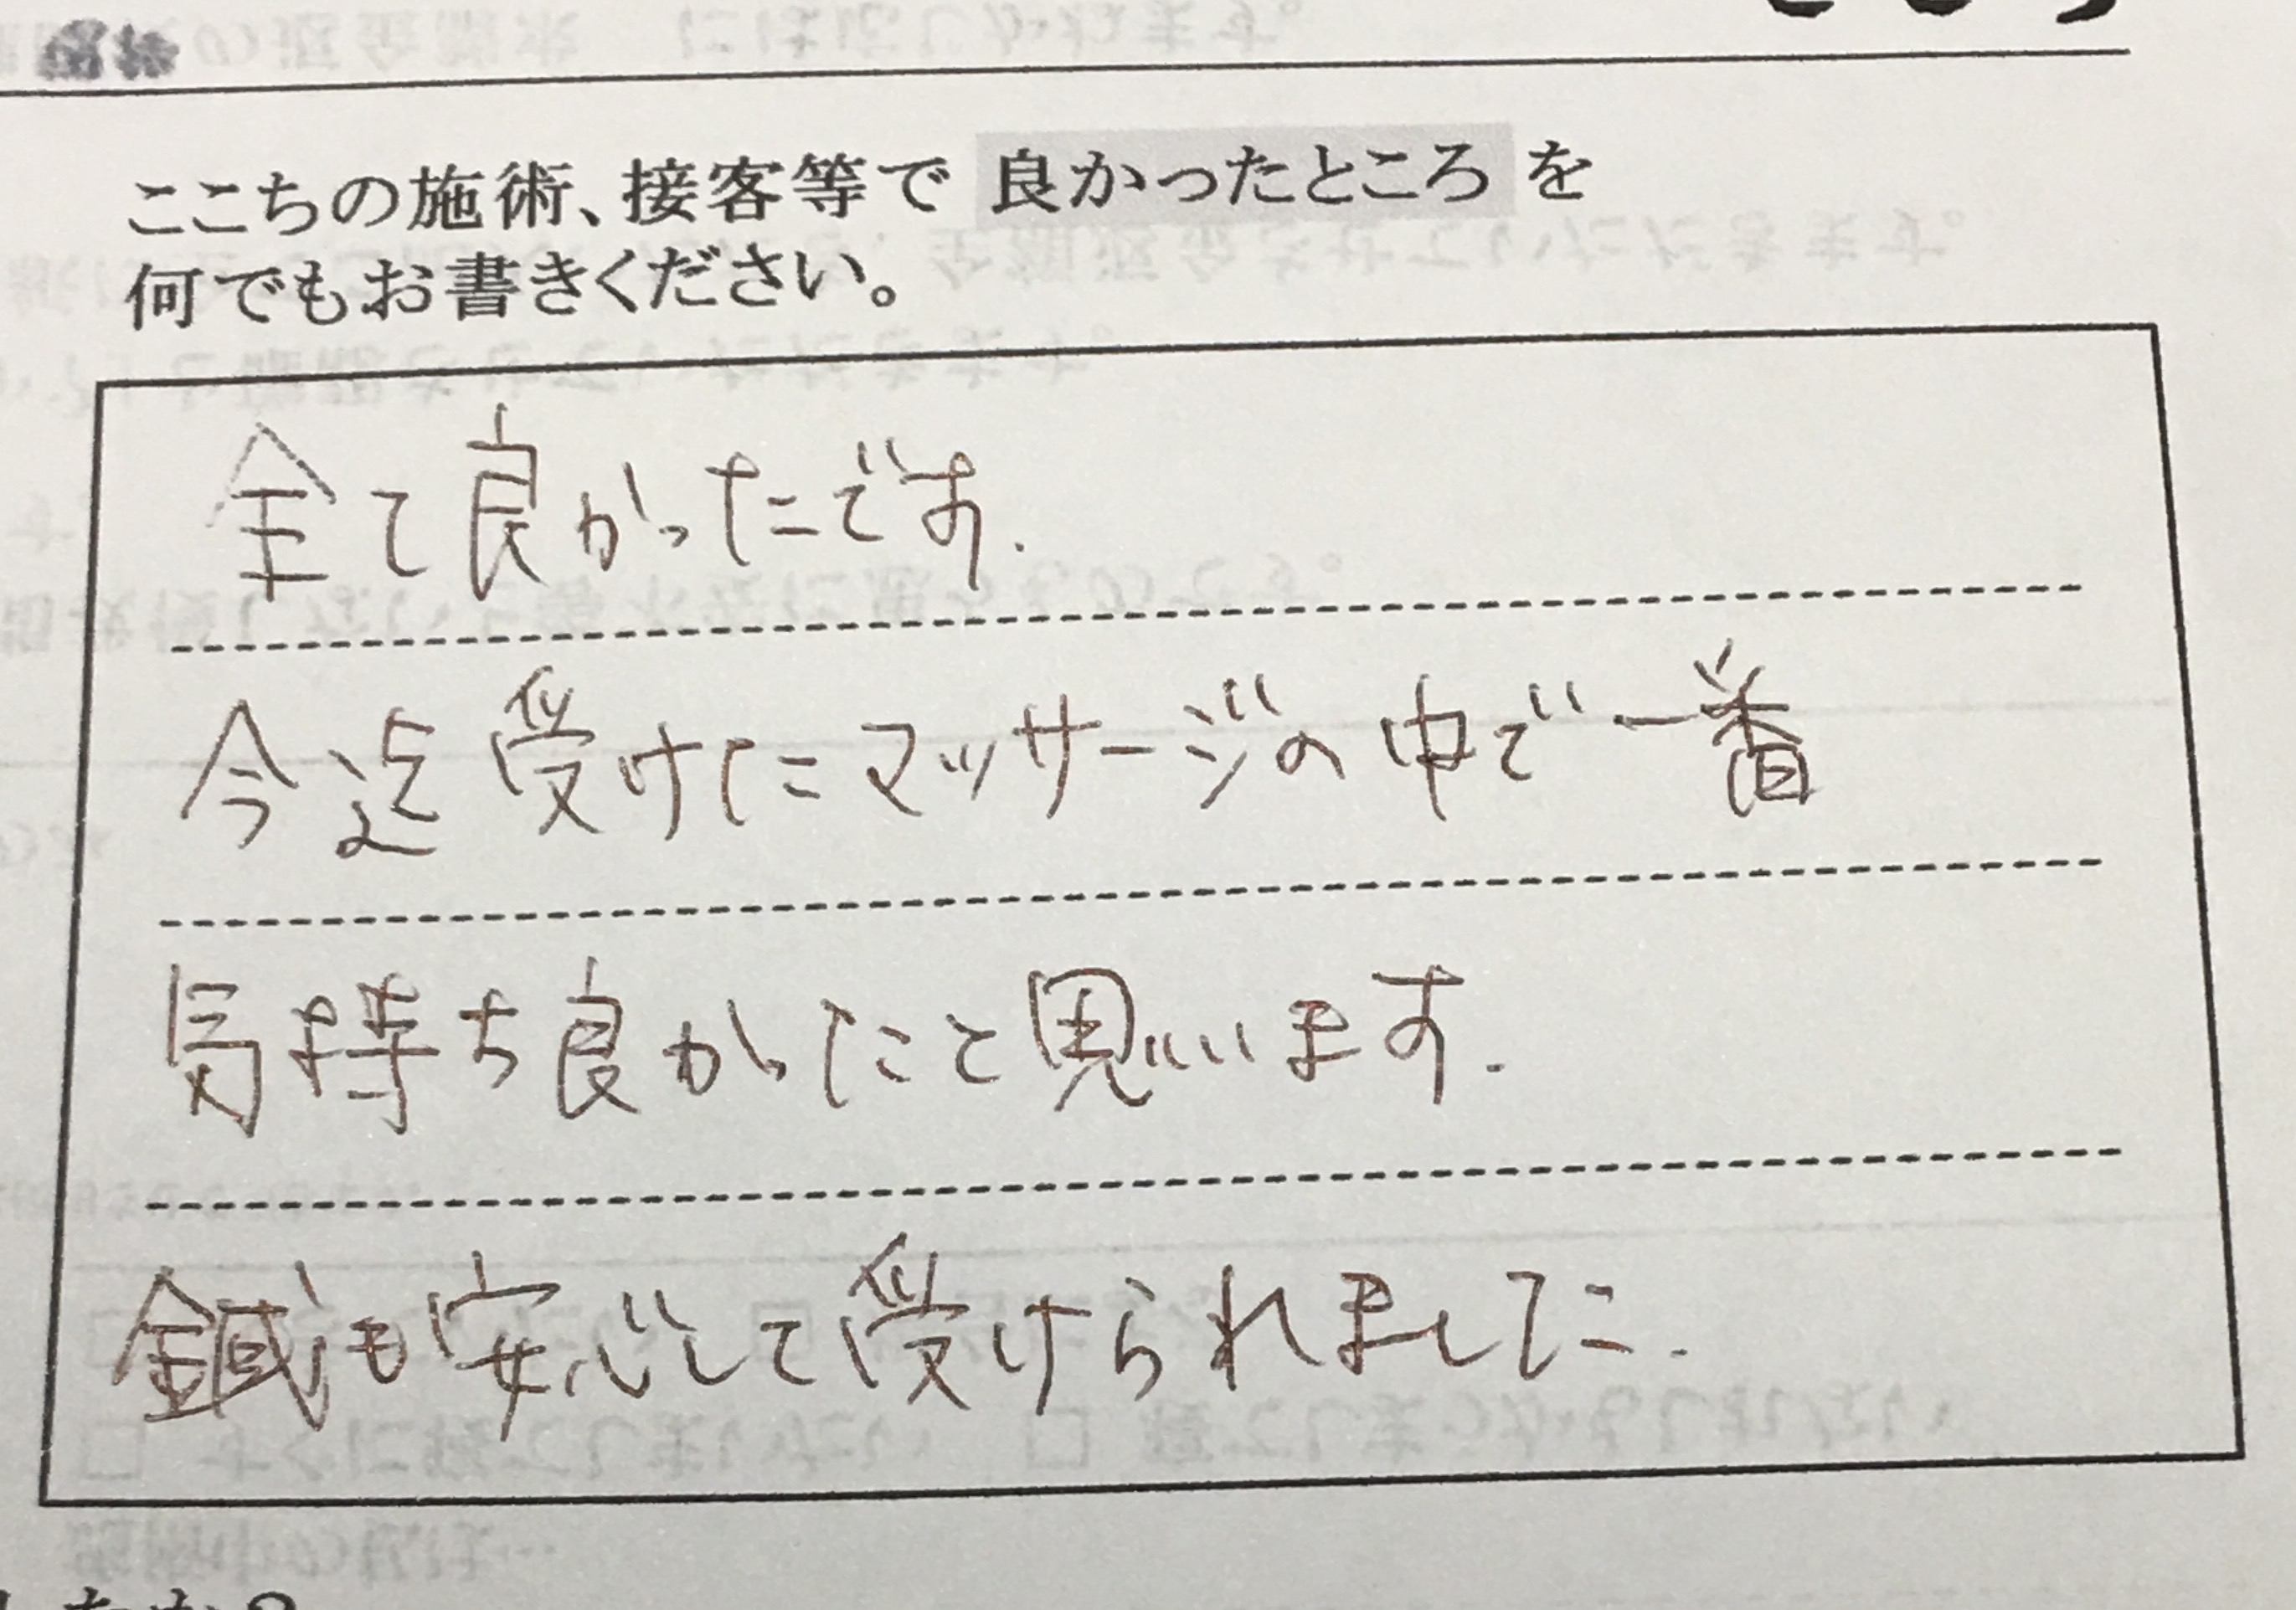 ここちの施術、接客等で 良かったところ を
何でもお書きください。
全て良かったです.
今迄受けたマッサージの中で一番
気持ち良かったと思います.
鍼も安心して受けられました.